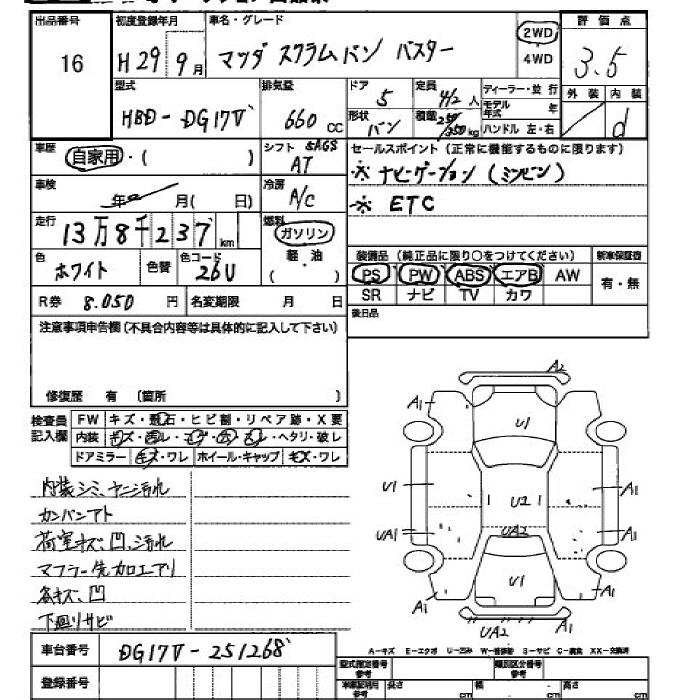 出品番号 初度登録年月 車名・グレード 評価点
16 H29年9月 マツダ スクラムバン バスター 2WD 4WD 3.5
型式 排気量 ドア 定員 ディーラー・並行 外装 内装
HBD-DG17V 660cc 5 4/2人 モデル年式 年 d
形状 バン 積載 250/350kg ハンドル 左・右
車歴 自家用・( ) シフト 5AGS AT セールスポイント(正常に機能するものに限ります)
※ ナビゲーション(ミンビン)
車検 年 月( 日) 冷房 A/C
※ ETC
走行 13万8千237km 燃料 ガソリン 軽・油 ( )
装備品(純正品に限り○をつけてください) 新車保証書
色 ホワイト 色替 色コード 26U
PS PW ABS エアB AW 有・無
SR ナビ TV カワ
R券 8.050円 名変期限 月 日
後日品
注意事項申告欄(不具合内容等は具体的に記入して下さい)
修復歴 有 〔箇所 〕
検査員記入欄 FW キズ・飛石・ヒビ割・リペア跡・X要
内装 キズ・ ・ヘタリ・破レ
ドアミラー キズ・ワレ ホイール・キャップ キズ・ワレ
内装シミ、ヤニ汚れ
カンバンアト
荷室キズ、凹、汚れ
マフラー先加工アリ
各キズ、凹
下廻りサビ
A2
A1 A1
U1
U1 U2 A1
UA1 UA2 A1
U1
A1 UA2 A1
A-キズ E-エクボ U-凹み W-補修跡 S-サビ C-腐食 XX-交換済
車台番号 DG17V-251268
登録番号
型式指定番号 参考 類別区分番号 参考
長さ cm 幅 cm 高さ cm